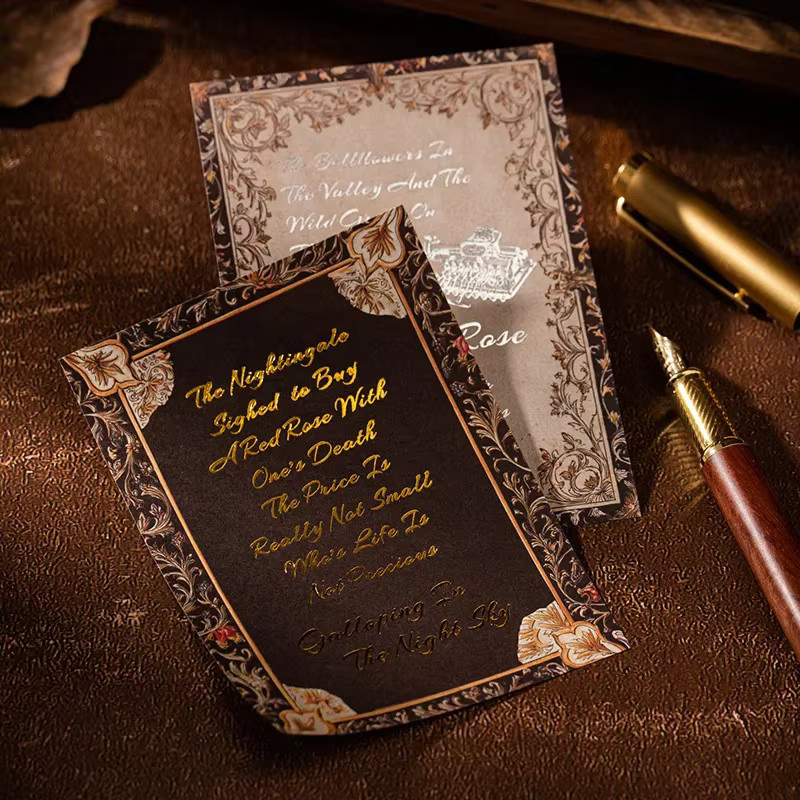 The Nightingale
Sighed to Buy
A Red Rose With
One's Death
The Price Is
Really Not Small
Who's Life Is
Not Precious
Galloping In
The Night Sky
The Bellflowers In
The Valley And The
Wild On
Rose